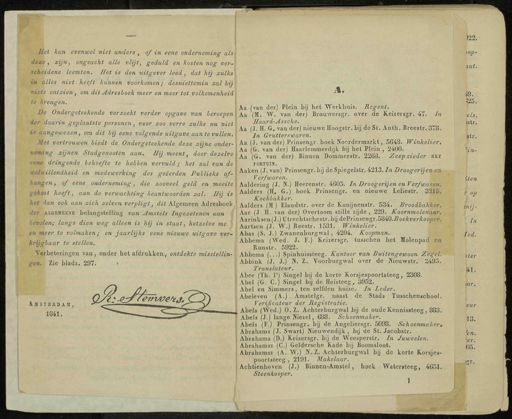 Het kan evenwel niet anders, of in eene onderneming als
deze, zijn, ongeacht alle vlijt, geduld en kosten nog ver-
scheidene leemten. Het is den uitgever leed, dat hij zulks
in alles niet heeft kunnen voorkomen; desniettemin zal hij
niets ontzien, om dit Adresboek meer en meer tot volkomenheid
te brengen.
De Ondergeteekende verzoekt verder opgave van beroepen
der daarin geplaatste personen, voor zoo verre zulks nu niet
is aangewezen, om dit bij eene volgende uitgave aan te vullen.
Met vertrouwen biedt de Ondergeteekende deze zijne onder-
neming zijnen Stadgenooten aan. Hij meent, door dezelve
eene dringende behoefte te hebben vervuld; het zal van de
welwillendheid en medewerking des geëerden Publieks af-
hangen, of eene onderneming, die zooveel geld en moeite
gekost heeft, aan de verwachting beantwoorden zal. Hij is
het dan ook aan zich zelven verpligt, dit Algemeen Adresboek
der ALGEMEENE belangstelling van Amstels Ingezetenen aan te
bevelen; langs dien weg alleen is hij in staat, hetzelve meer
en meer te volmaken, en jaarlijks eene nieuwe uitgave ver-
krijgbaar te stellen.
Verbeteringen van, onder het afdrukken, ontdekte misstellin-
gen. Zie bladz. 297.
AMSTERDAM,
1841.
A.
Aa (van der) Plein bij het Werkhuis. Regent.
Aa (M. W. van der) Brouwersgr. over de Keizersgr. 47. In
Haard-Assche.
Aa (J. H. G. van der) nieuwe Hoogstr. bij de St. Anth. Breestr. 373.
In Grutterswaren.
Aa (J. van der) Prinsengr. hoek Noordermarkt, 5643. Winkelier.
Aa (G. van der) Haarlemmerdijk bij het Plein, 2406.
Aa (G. van der) Binnen Dommerstr. 2263. Zeepzieder aux
PORTEUR.
Aaken (J. van) Prinsengr. bij de Spiegelstr. 4213. In Drogerijen en
Verfwaren.
Aaldering (J. N.) Heerenstr. 4805. In Drogerijen en Verfwaren.
Aalders (H. G.) hoek Prinsengr. en nieuwe Leliestr. 3215.
Koekbakker.
Aalders (M) Elandstr. over de Konijnenstr. 534. Broodbakker.
Aar (H. van der) Overtoom stille zijde, 229. Koornmolenaar.
Aartsen (J. W.) Reestr. 1531. Winkelier.
Abas (S. J.) Zwanenburgwal, 4294. Koopman.
Abbema (Wed. J. F.) Keizersgr. tusschen het Molenpad en
Runstr. 5922.
Abbema (...) Spinhuissteeg. Kantoor van Buitengewoon Zegel.
Abbink (J. J.) N. Z. Voorburgwal over de Nieuwstr. 2495.
Translateur.
Abee (Th. P) Singel bij de korte Korsjespoortsteeg, 2308.
Abel (G. C.) Singel bij de Heisteeg, 3952.
Abel en Simmers, het Witte huis. In Leder.
Abeleven (A.) Amstelgr. naast de Stads Tusschenschool.
Verificateur der Registratie.
Abels (Wed.) O. Z. Achterburgwal bij de oude Kennissteeg, 883.
Abels (J.) lange Niezel, 688. Schoenmaker.
Abels (F.) Prinsengr. bij de Angeliersgr. 5693. Schoenmaker.
Abrahams (J. Swart) Nieuwendijk, bij de St. Jacobstr.
Abrahams (D.) Keizersgr. bij de Weesperstr. In Juweelen.
Abrahams (C.) Geldersche Kade bij Boomsloot.
Abrahamsz (A. W.) N. Z. Achterburgwal bij de korte Korsjes-
poortsteeg, 2191. Makelaar.
Achtienhoven (J.) Binnen-Amstel, hoek Watersteeg, 4651.
Steenkooper.
1